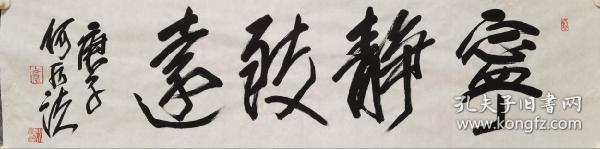 寧靜致遠
庚子
何
孔夫子旧书网
www.kongfz.com